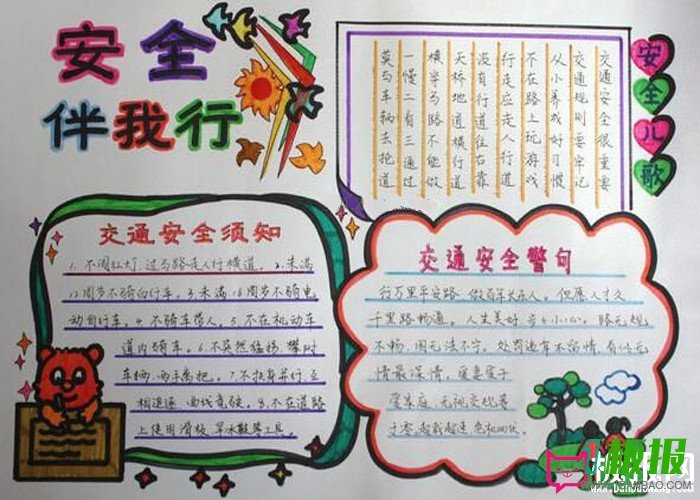 安全
伴我行
安全儿歌
交通安全很重要
交通规则要牢记
从小养成好习惯
不在路上玩游戏
行走应走人行道
没有行道往右靠
天桥地道横行道
横穿马路不能做
一慢二看三通过
莫与车辆去抢道
交通安全须知
1. 不闯红灯,过马路走人行横道。2.未满
12周岁不骑自行车。3.未满16周岁不骑电
动自行车。4.不骑车带人。5.不在机动车
道内骑车。6.不突然猛拐、攀附
车辆、两手离把。7.不扶身并行、互
相追逐、曲线竞驶。8.不在道路
上使用滑板、旱冰鞋等工具。
交通安全警句
行万里平安路,做百年长乐人。但愿人长久
千里路畅通。人生美好 步步小心。路无规
不畅,国无法不宁。处罚违章不留情,看似无
情最深情。爱妻爱子
爱家庭,无视交规等
于零。超载超速 危机四伏。
趣报